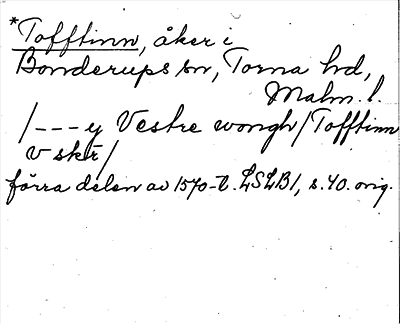 *Tofftinn, åker i
Bonderups sn, Torna hd,
Malm. l.
/--- y Vestre wongh/Tofftinn
v skr/
förra delen av 1570-t. LSLB1, s. 40. orig.